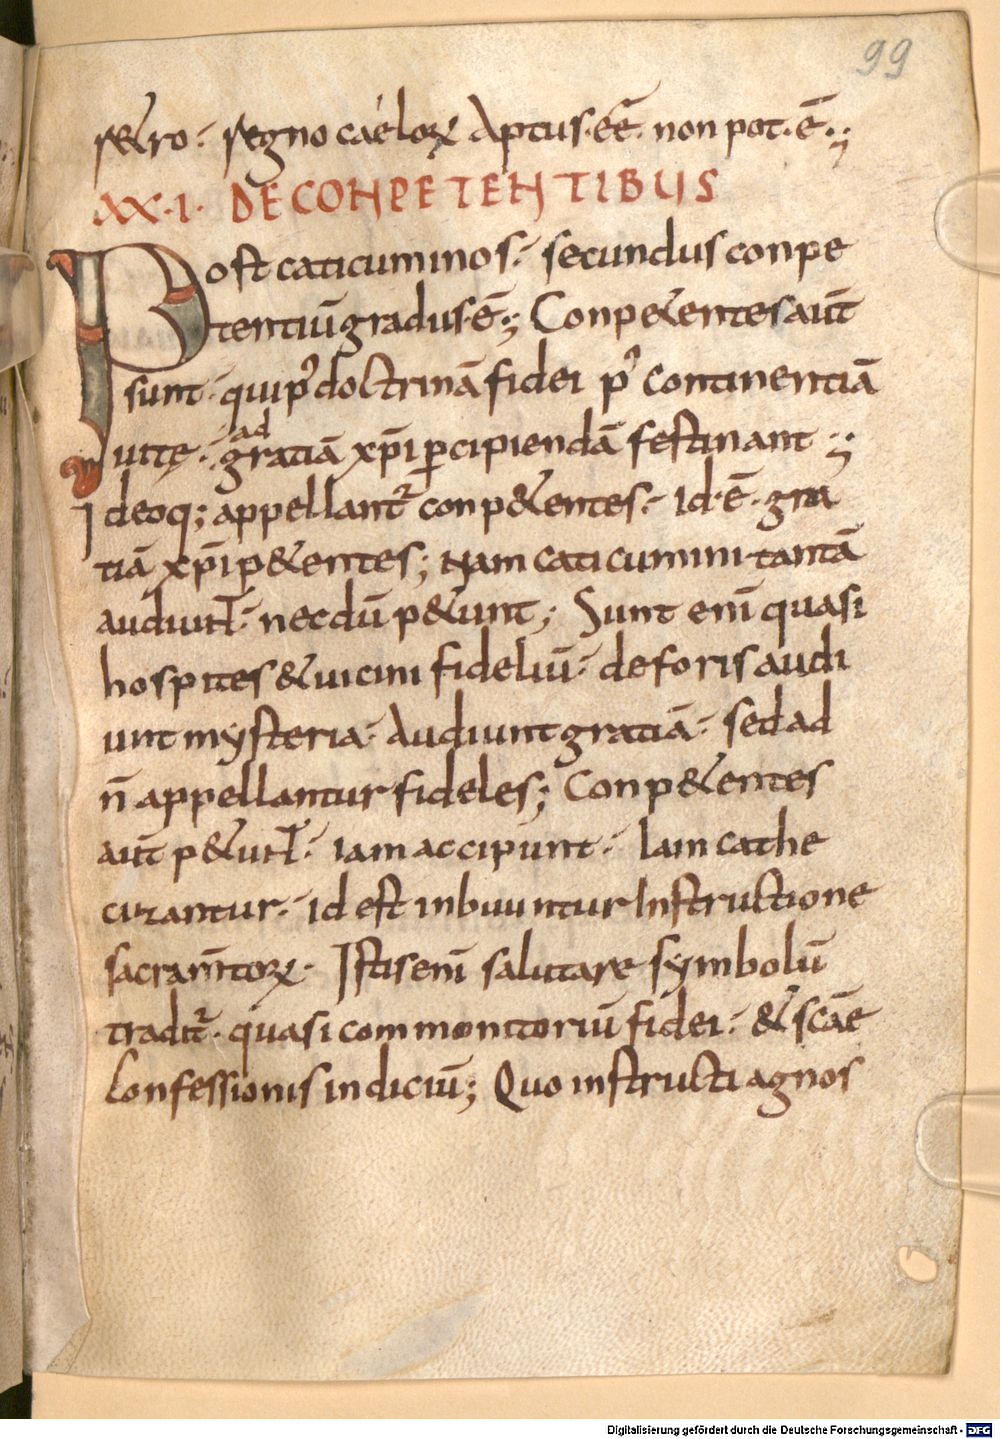 99
r&ro·̄ regno caelorꝝ Aptus·eē· non pot·ē·;
XX·I· DE CONPETENTIBUS
Post caticuminos·̄ secundus conpe
tentiū gradus·ē·; Conp&entes aut̄
sunt·̄ qui p᾿ doctrinā fidei p᾿ continentiā
uitę·̄ ad gratiā xp̄i ꝑcipiendā festinant·;
Ideoq; appellant᷑ conp&entes·̄ id·ē· gra
tiā xp̄i p&entes; Nam caticumini tantā
audiunt·̄ necdū p&unt; Sunt enī quasi
hospites & uicini fideliū·̄ deforis audi
unt mysteria·̄ Audiunt gratiā·̄ sed ad
n̄ appellantur fideles; Conp&entes
aut̄ p&unt·̄ iam accipiunt·̄ Iam cathe
cizantur·̄ id est inbuuntur Instructione
sacram̄torꝝ· Istis enī salutare symbolū
tradit᷑· quasi commonitoriū fidei·̄ & scāe
Confessionis indiciū; Quo instructi agnos
Digitalisierung gefördert durch die Deutsche Forschungsgemeinschaft - DFG